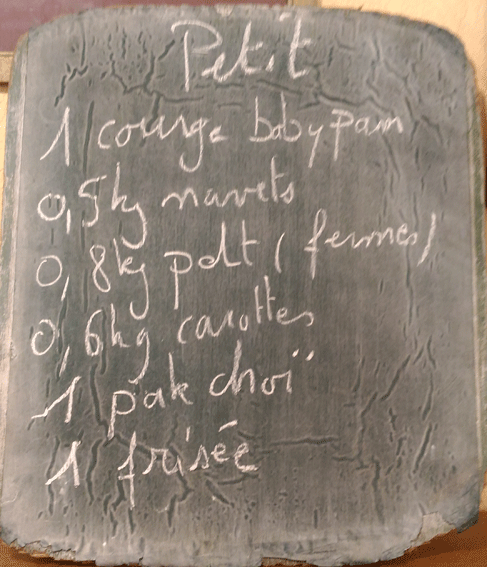 Petit
1 courge baby pam
0,5kg navets
0,8kg pdt (fermes)
0,6kg carottes
1 pak choï
1 frisée